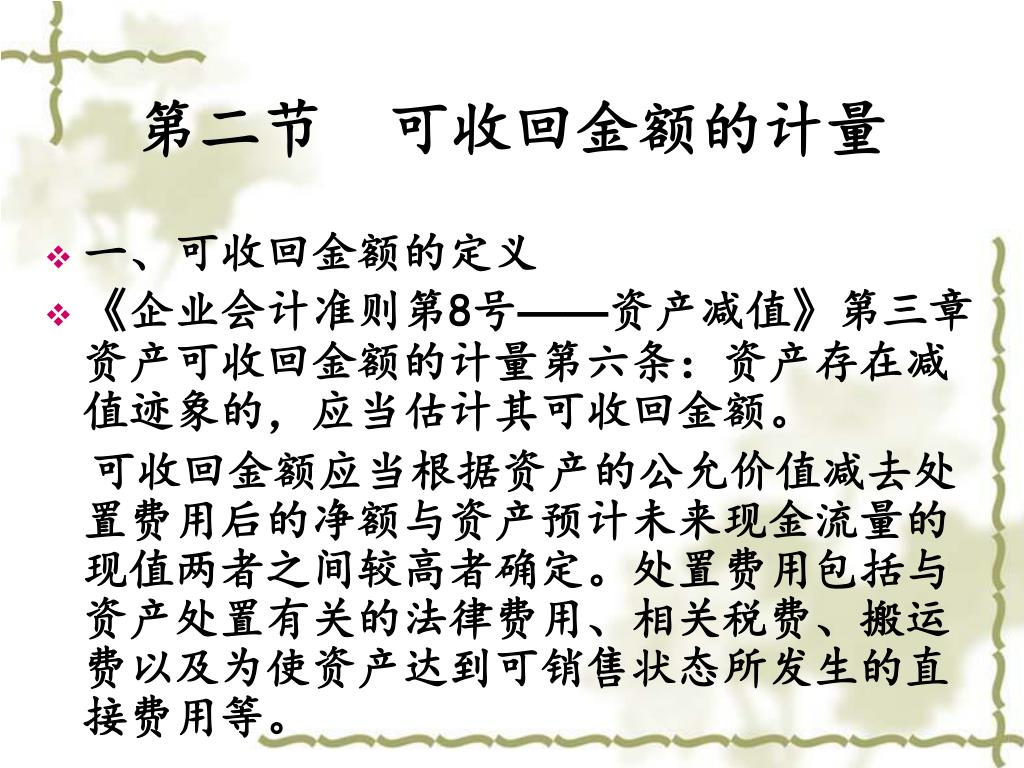 第二节　可收回金额的计量
一、可收回金额的定义
《企业会计准则第8号——资产减值》第三章
资产可收回金额的计量第六条：资产存在减
值迹象的，应当估计其可收回金额。
可收回金额应当根据资产的公允价值减去处
置费用后的净额与资产预计未来现金流量的
现值两者之间较高者确定。处置费用包括与
资产处置有关的法律费用、相关税费、搬运
费以及为使资产达到可销售状态所发生的直
接费用等。